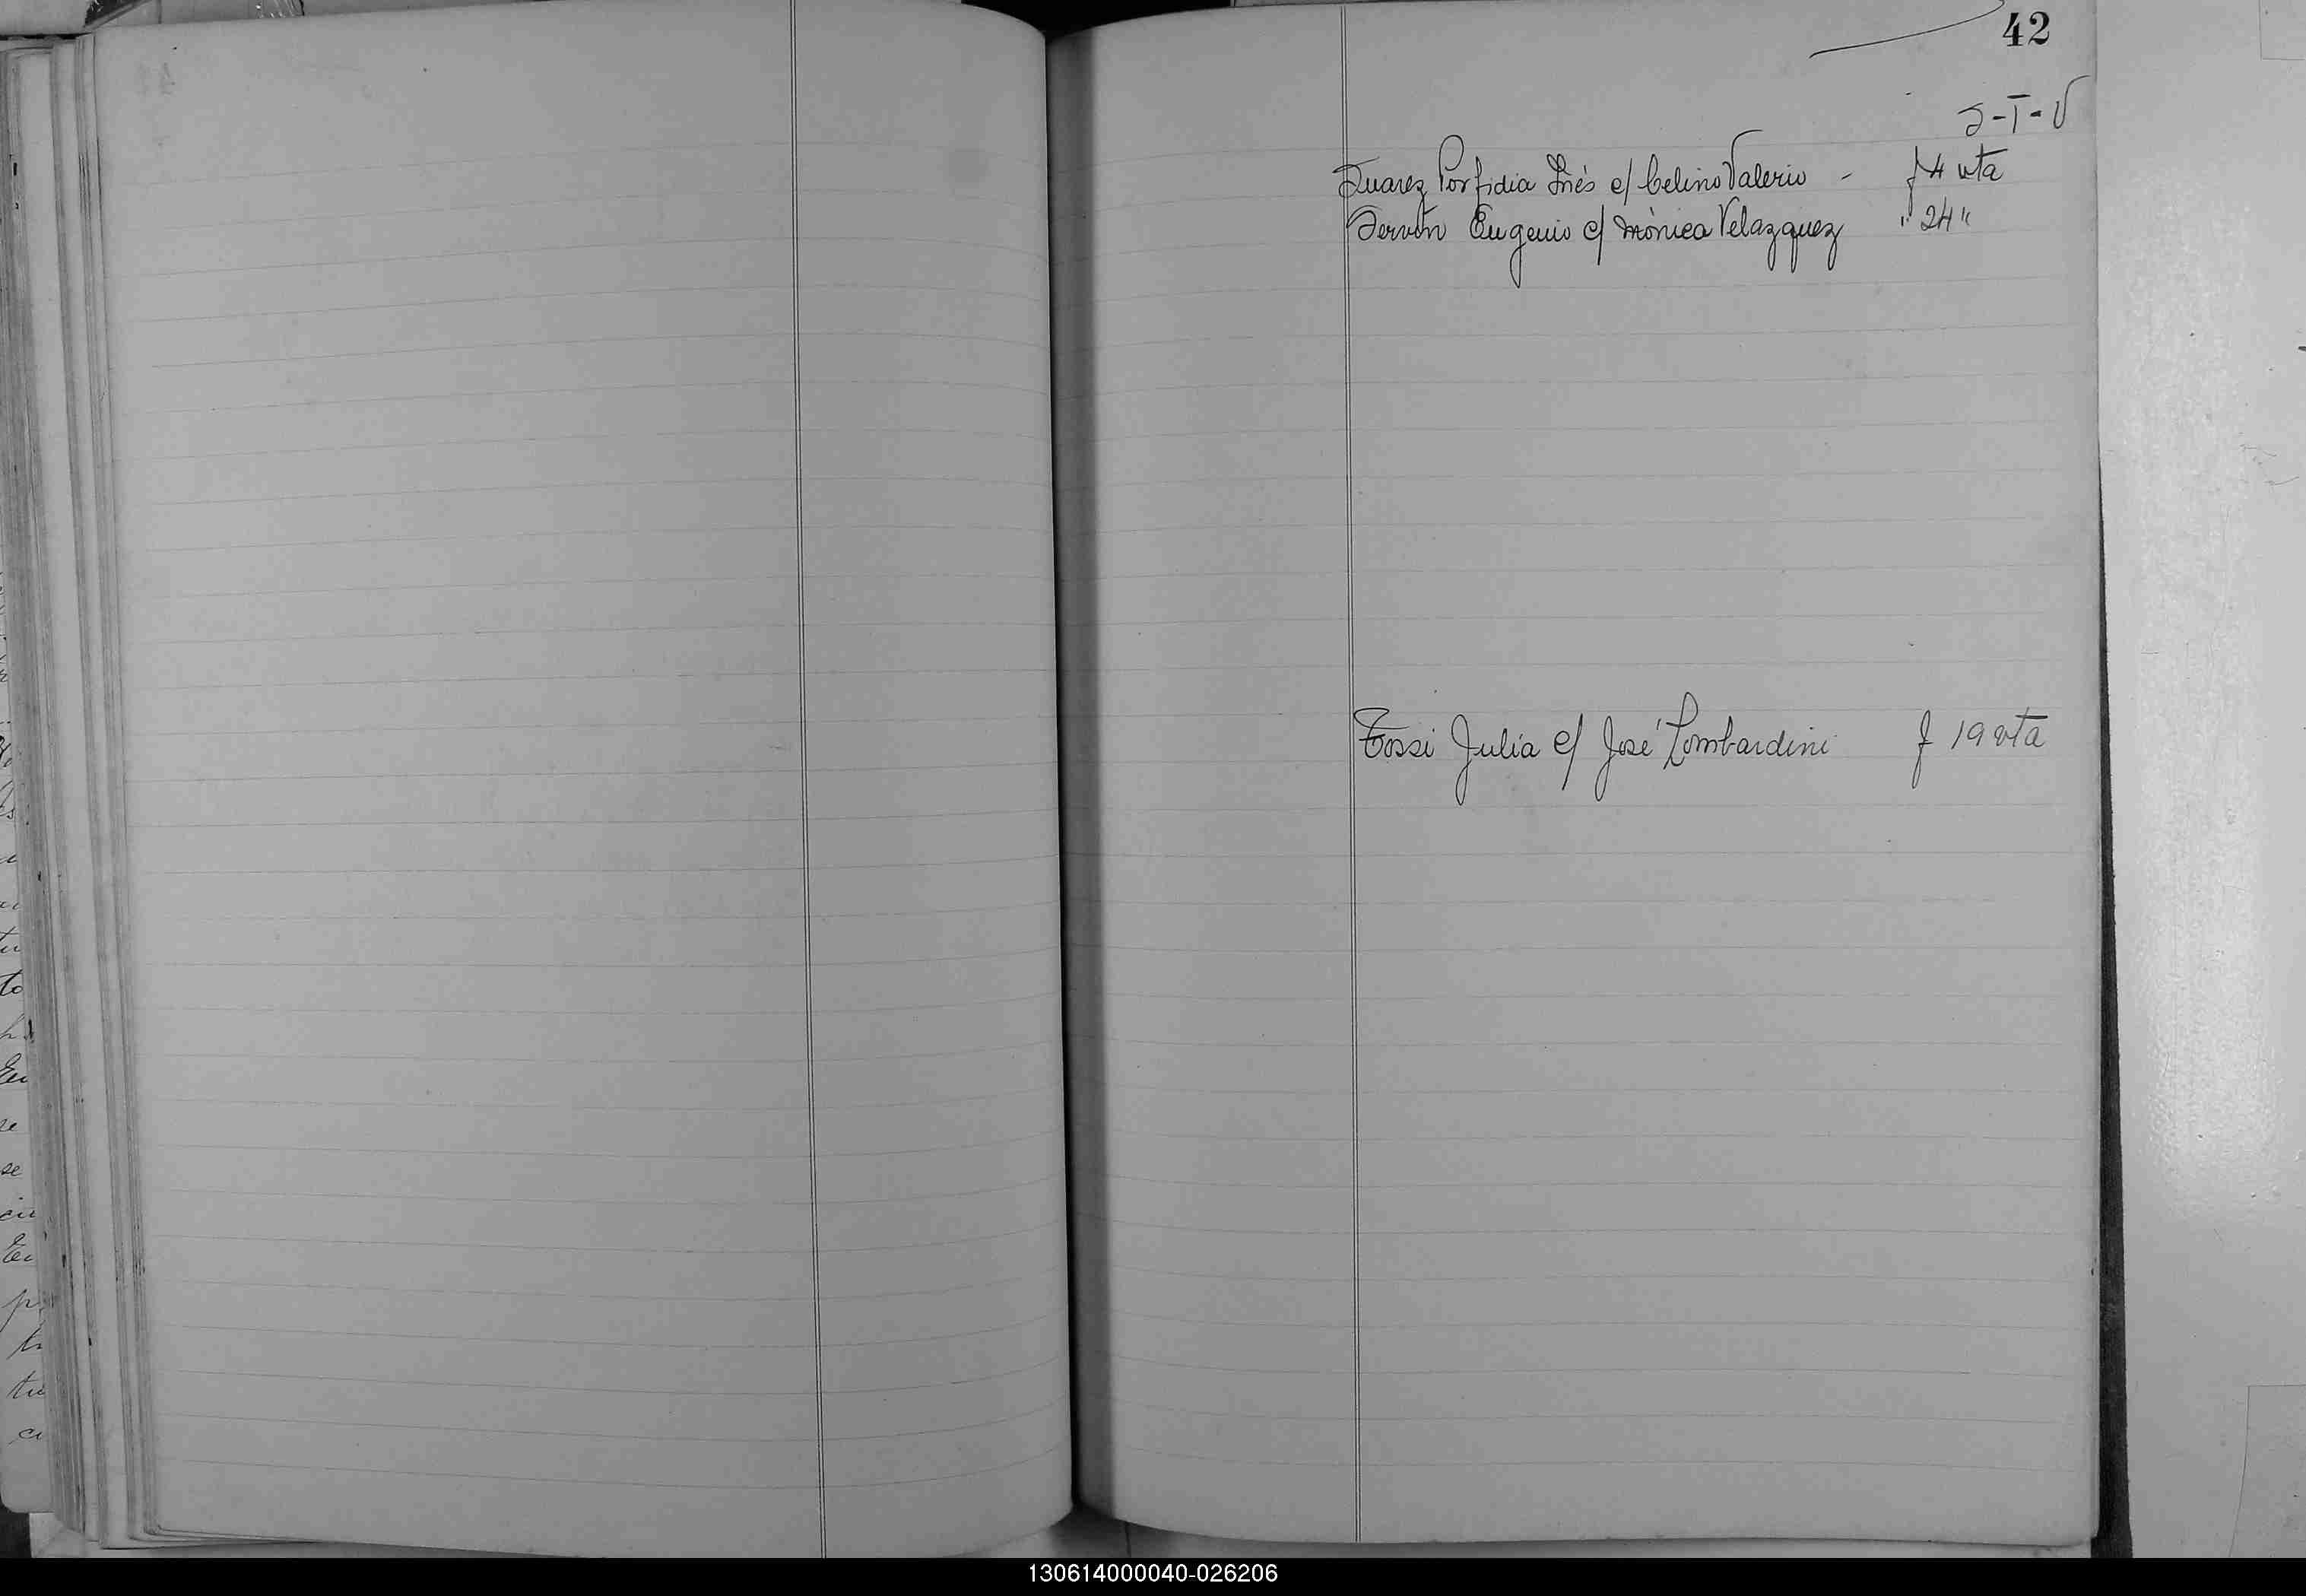 42
S-T-V
Suarez Porfidia Inés c/ Celino Valerio - f 4 vta
Servin Eugenio c/ Mónica Velazquez " 24 "
Tossi Julia c/ José Lombardini f 19 vta
130614000040-026206